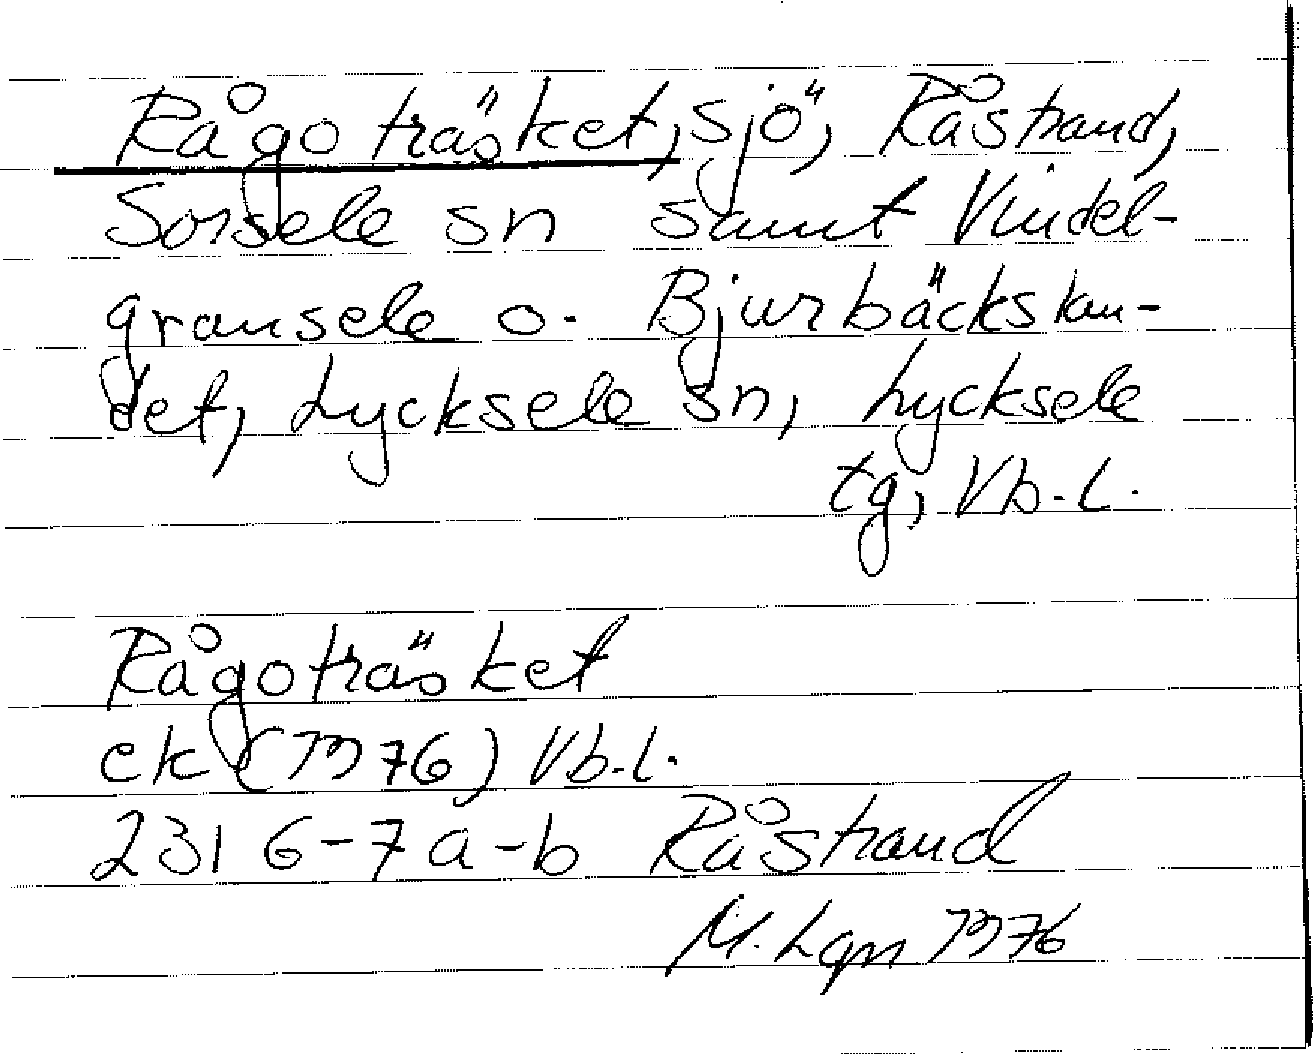 Rågoträsket, sjö, Råstrand,
Sorsele sn samt Vindel-
gransele o. Bjurbäckslan-
det, Lycksele sn, Lycksele
tg, Vb.l.
Rågoträsket
ek (1976) Vb.l.
231 6-7 a-b Råstrand
M. Lgn 1976